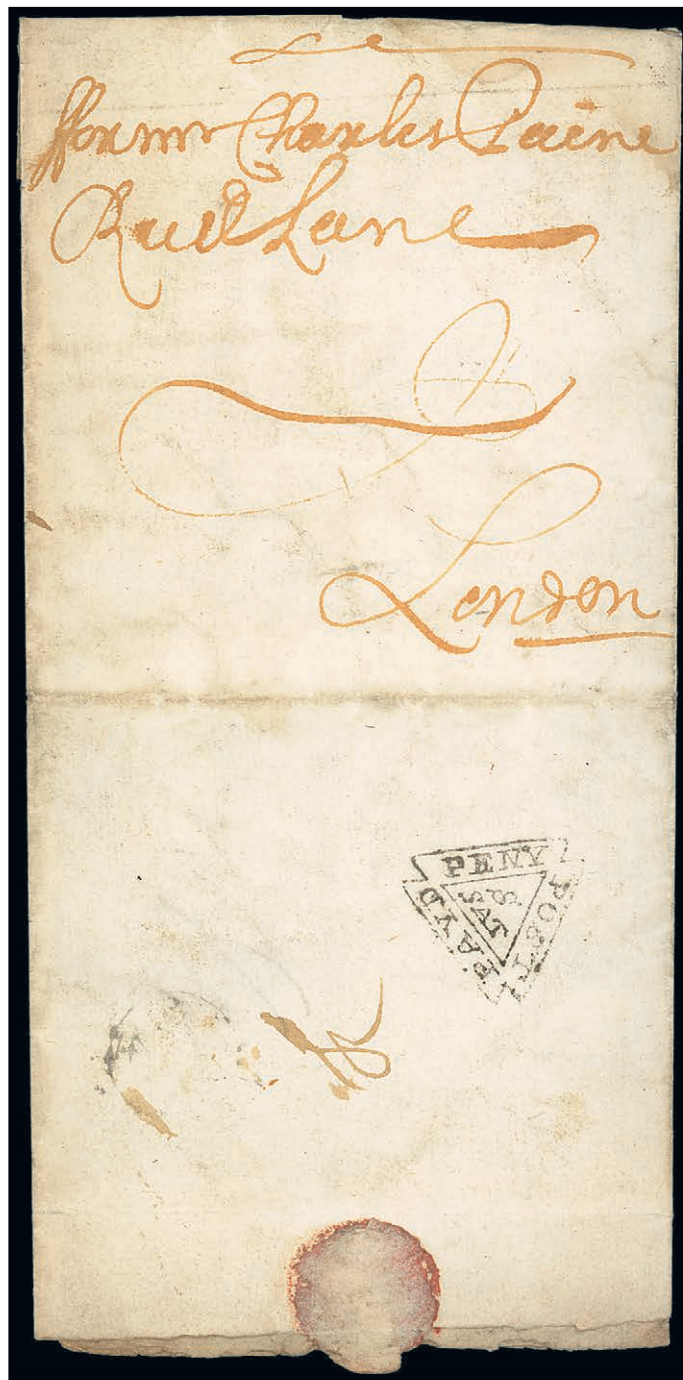 ffor mr Charles Paine
Rudd Lane
London
PENY POST PAYD
S
SAT